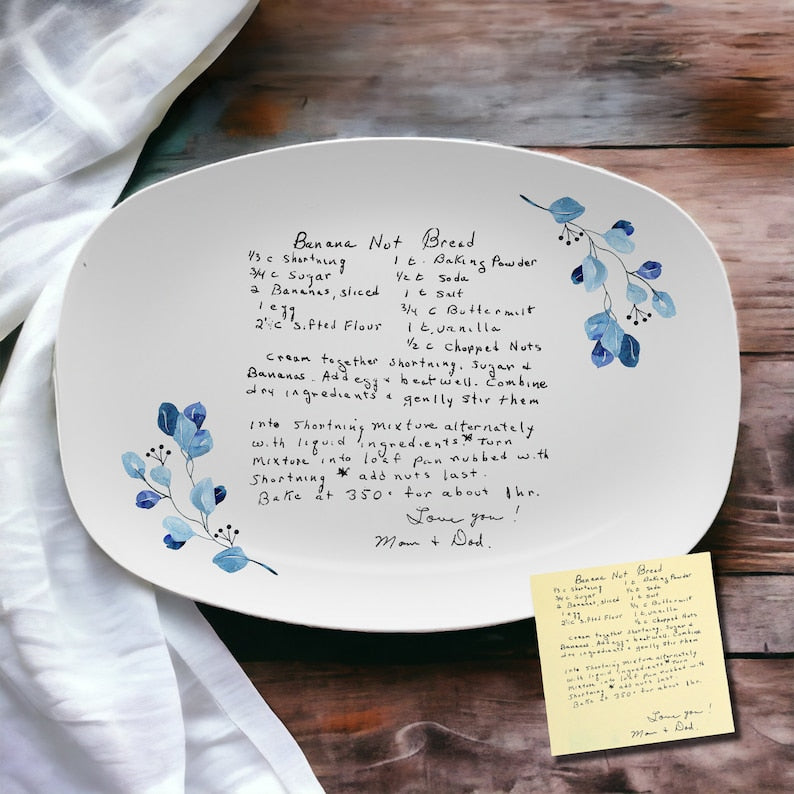 Banana Nut Bread
1/3 c Shortning 1 t. Baking Powder
3/4 c Sugar 1/2 t Soda
2 Bananas, sliced 1 t Salt
1 egg 3/4 c Buttermilk
2 1/2 c Sifted Flour 1 t. vanilla
1/2 c Chopped Nuts
Cream together Shortning, Sugar &
Bananas. Add egg & beat well. Combine
dry ingredients & genlly stir them
into Shortning mixture alternately
with liquid ingredients * Turn
mixture into loaf pan rubbed with
Shortning * add nuts last.
Bake at 350° for about 1 hr.
Love you!
Mom + Dad.
Banana Nut Bread
1/3 c Shortning 1 t Baking Powder
3/4 c Sugar 1/2 t Soda
2 Bananas, sliced 1 t Salt
1 egg 3/4 c Buttermilk
2 1/2 c Sifted Flour 1 t. vanilla
1/2 c Chopped Nuts
Cream together Shortning, Sugar &
Bananas. Add egg & beat well. Combine
dry ingredients & genlly stir them
into Shortning mixture alternately
with liquid ingredients * Turn
mixture into loaf pan rubbed with
Shortning * add nuts last.
Bake at 350° for about 1 hr.
Love you!
Mom + Dad.